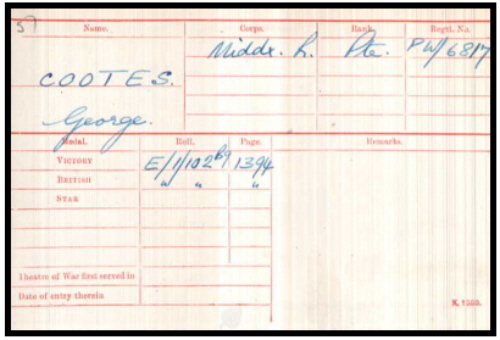 57
Name. Corps. Rank. Regtl. No.
Middx. R. Pte. PW/6817
COOTES.
George.
Medal. Roll. Page. Remarks.
VICTORY E/1/102 B9 1394
BRITISH " " "
STAR
Theatre of War first served in
Date of entry therein
K. 1380.